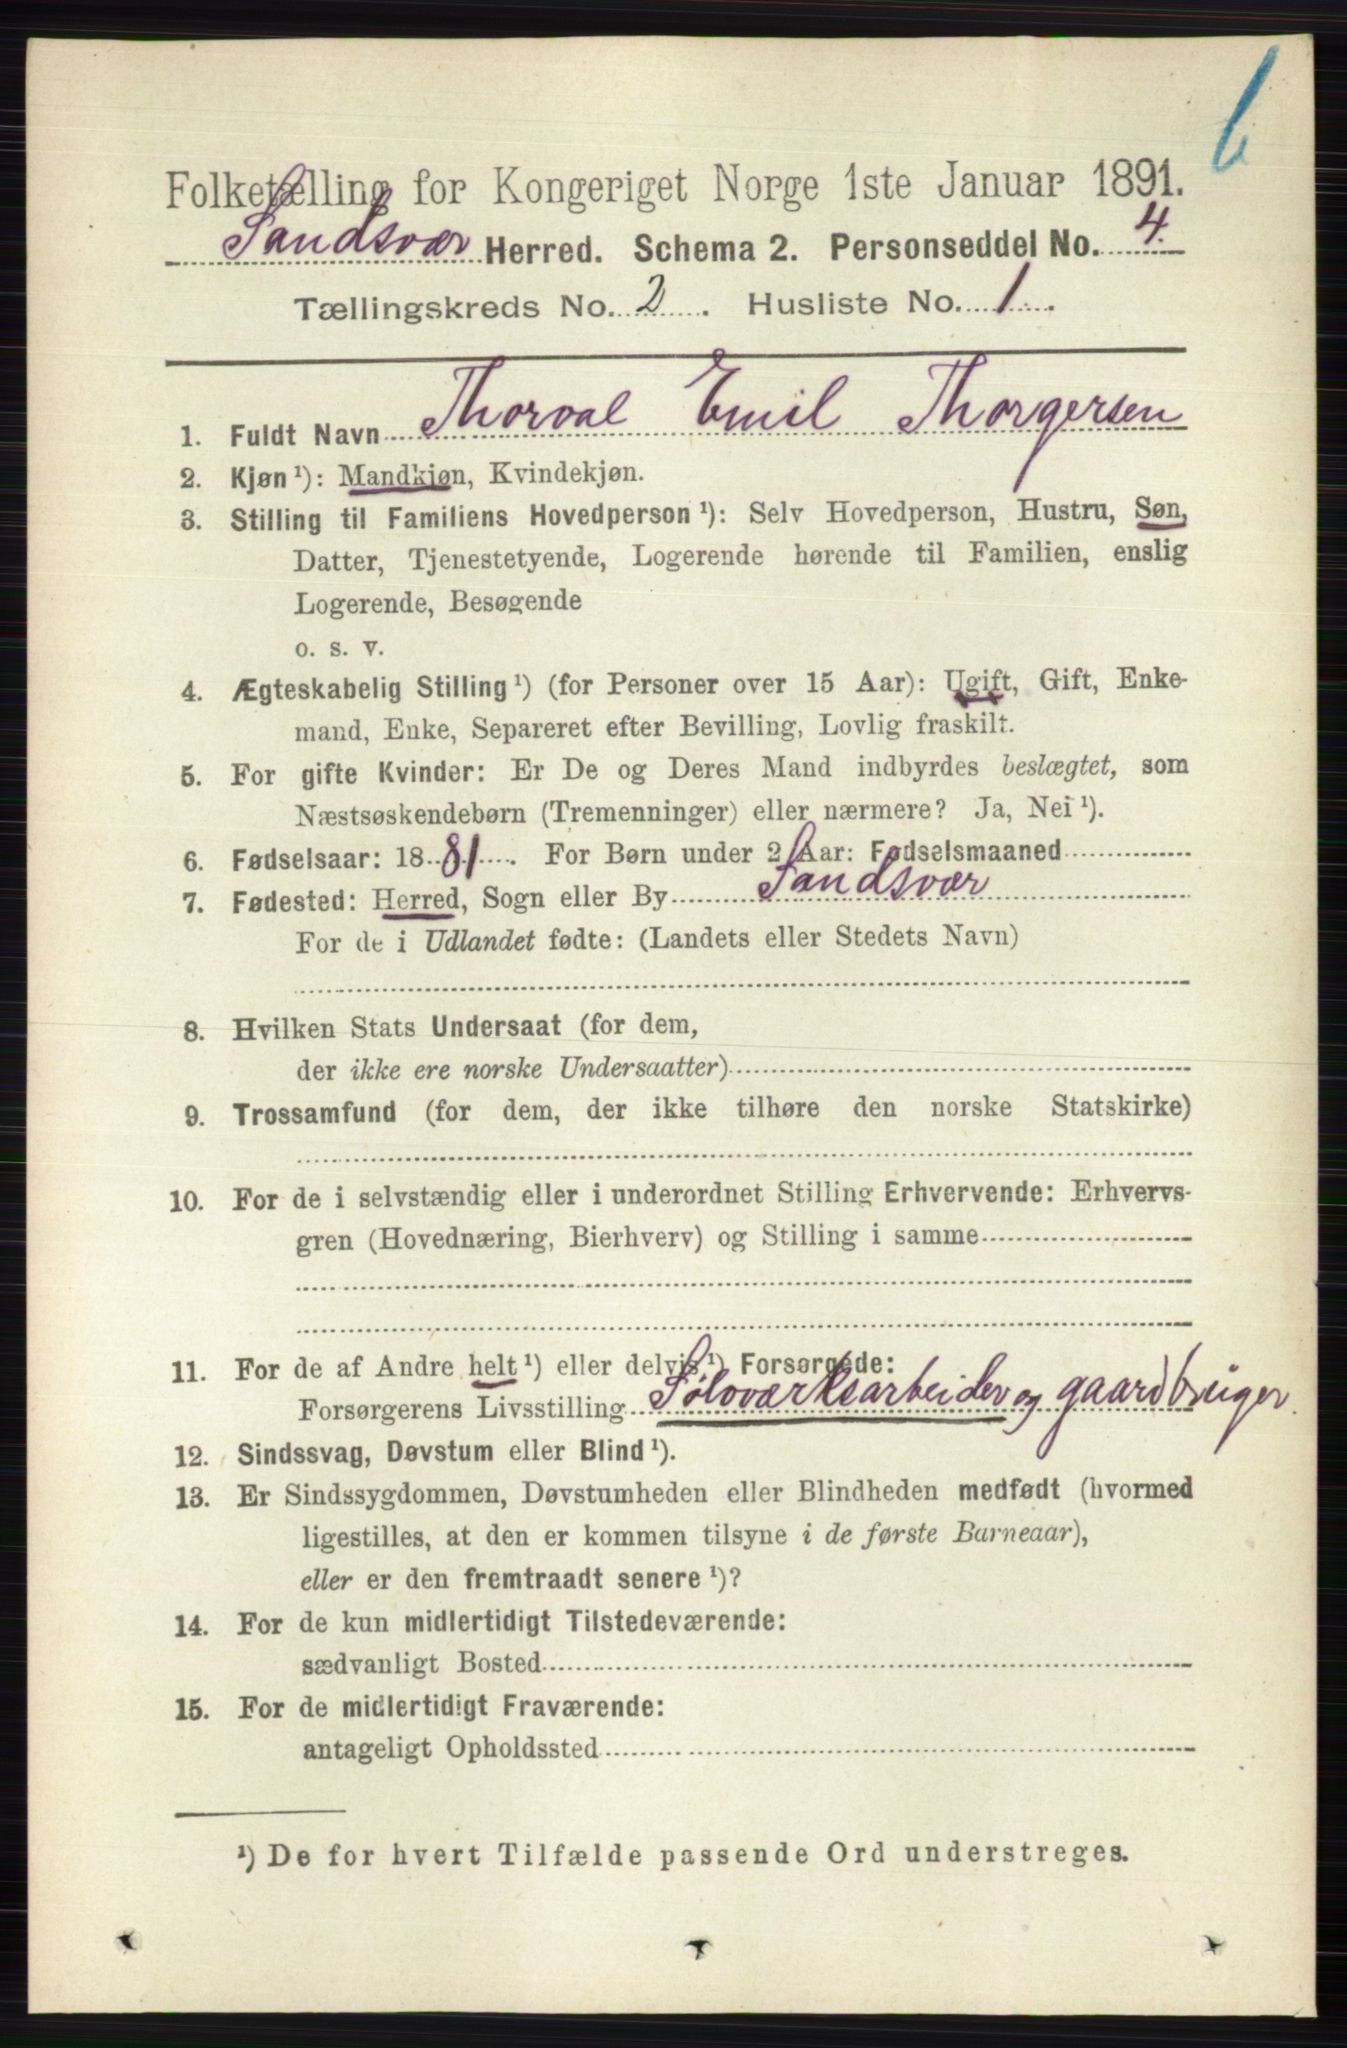 6
Folketælling for Kongeriget Norge 1ste Januar 1891.
Sandsvær Herred. Schema 2. Personseddel No. 4.
Tællingskreds No. 2. Husliste No. 1.
1. Fuldt Navn Thorval Emil Thorgersen
2. Kjøn ¹): Mandkjøn, Kvindekjøn.
3. Stilling til Familiens Hovedperson ¹): Selv Hovedperson, Hustru, Søn,
Datter, Tjenestetyende, Logerende hørende til Familien, enslig
Logerende, Besøgende
o. s. v.
4. Ægteskabelig Stilling ¹) (for Personer over 15 Aar): Ugift, Gift, Enke-
mand, Enke, Separeret efter Bevilling, Lovlig fraskilt.
5. For gifte Kvinder: Er De og Deres Mand indbyrdes beslægtet, som
Næstsøskendebørn (Tremenninger) eller nærmere? Ja, Nei ¹).
6. Fødselsaar: 1881. For Børn under 2 Aar: Fødselsmaaned
7. Fødested: Herred, Sogn eller By Sandsvær
For de i Udlandet fødte: (Landets eller Stedets Navn)
8. Hvilken Stats Undersaat (for dem,
der ikke ere norske Undersaatter)
9. Trossamfund (for dem, der ikke tilhøre den norske Statskirke)
10. For de i selvstændig eller i underordnet Stilling Erhvervende: Erhvervs-
gren (Hovednæring, Bierhverv) og Stilling i samme
11. For de af Andre helt ¹) eller delvis ¹) Forsørgede:
Forsørgerens Livsstilling Sølvværksarbeider og gaardbruiger
12. Sindssvag, Døvstum eller Blind ¹).
13. Er Sindssygdommen, Døvstumheden eller Blindheden medfødt (hvormed
ligestilles, at den er kommen tilsyne i de første Barneaar),
eller er den fremtraadt senere ¹)?
14. For de kun midlertidigt Tilstedeværende:
sædvanligt Bosted
15. For de midlertidigt Fraværende:
antageligt Opholdssted
¹) De for hvert Tilfælde passende Ord understreges.